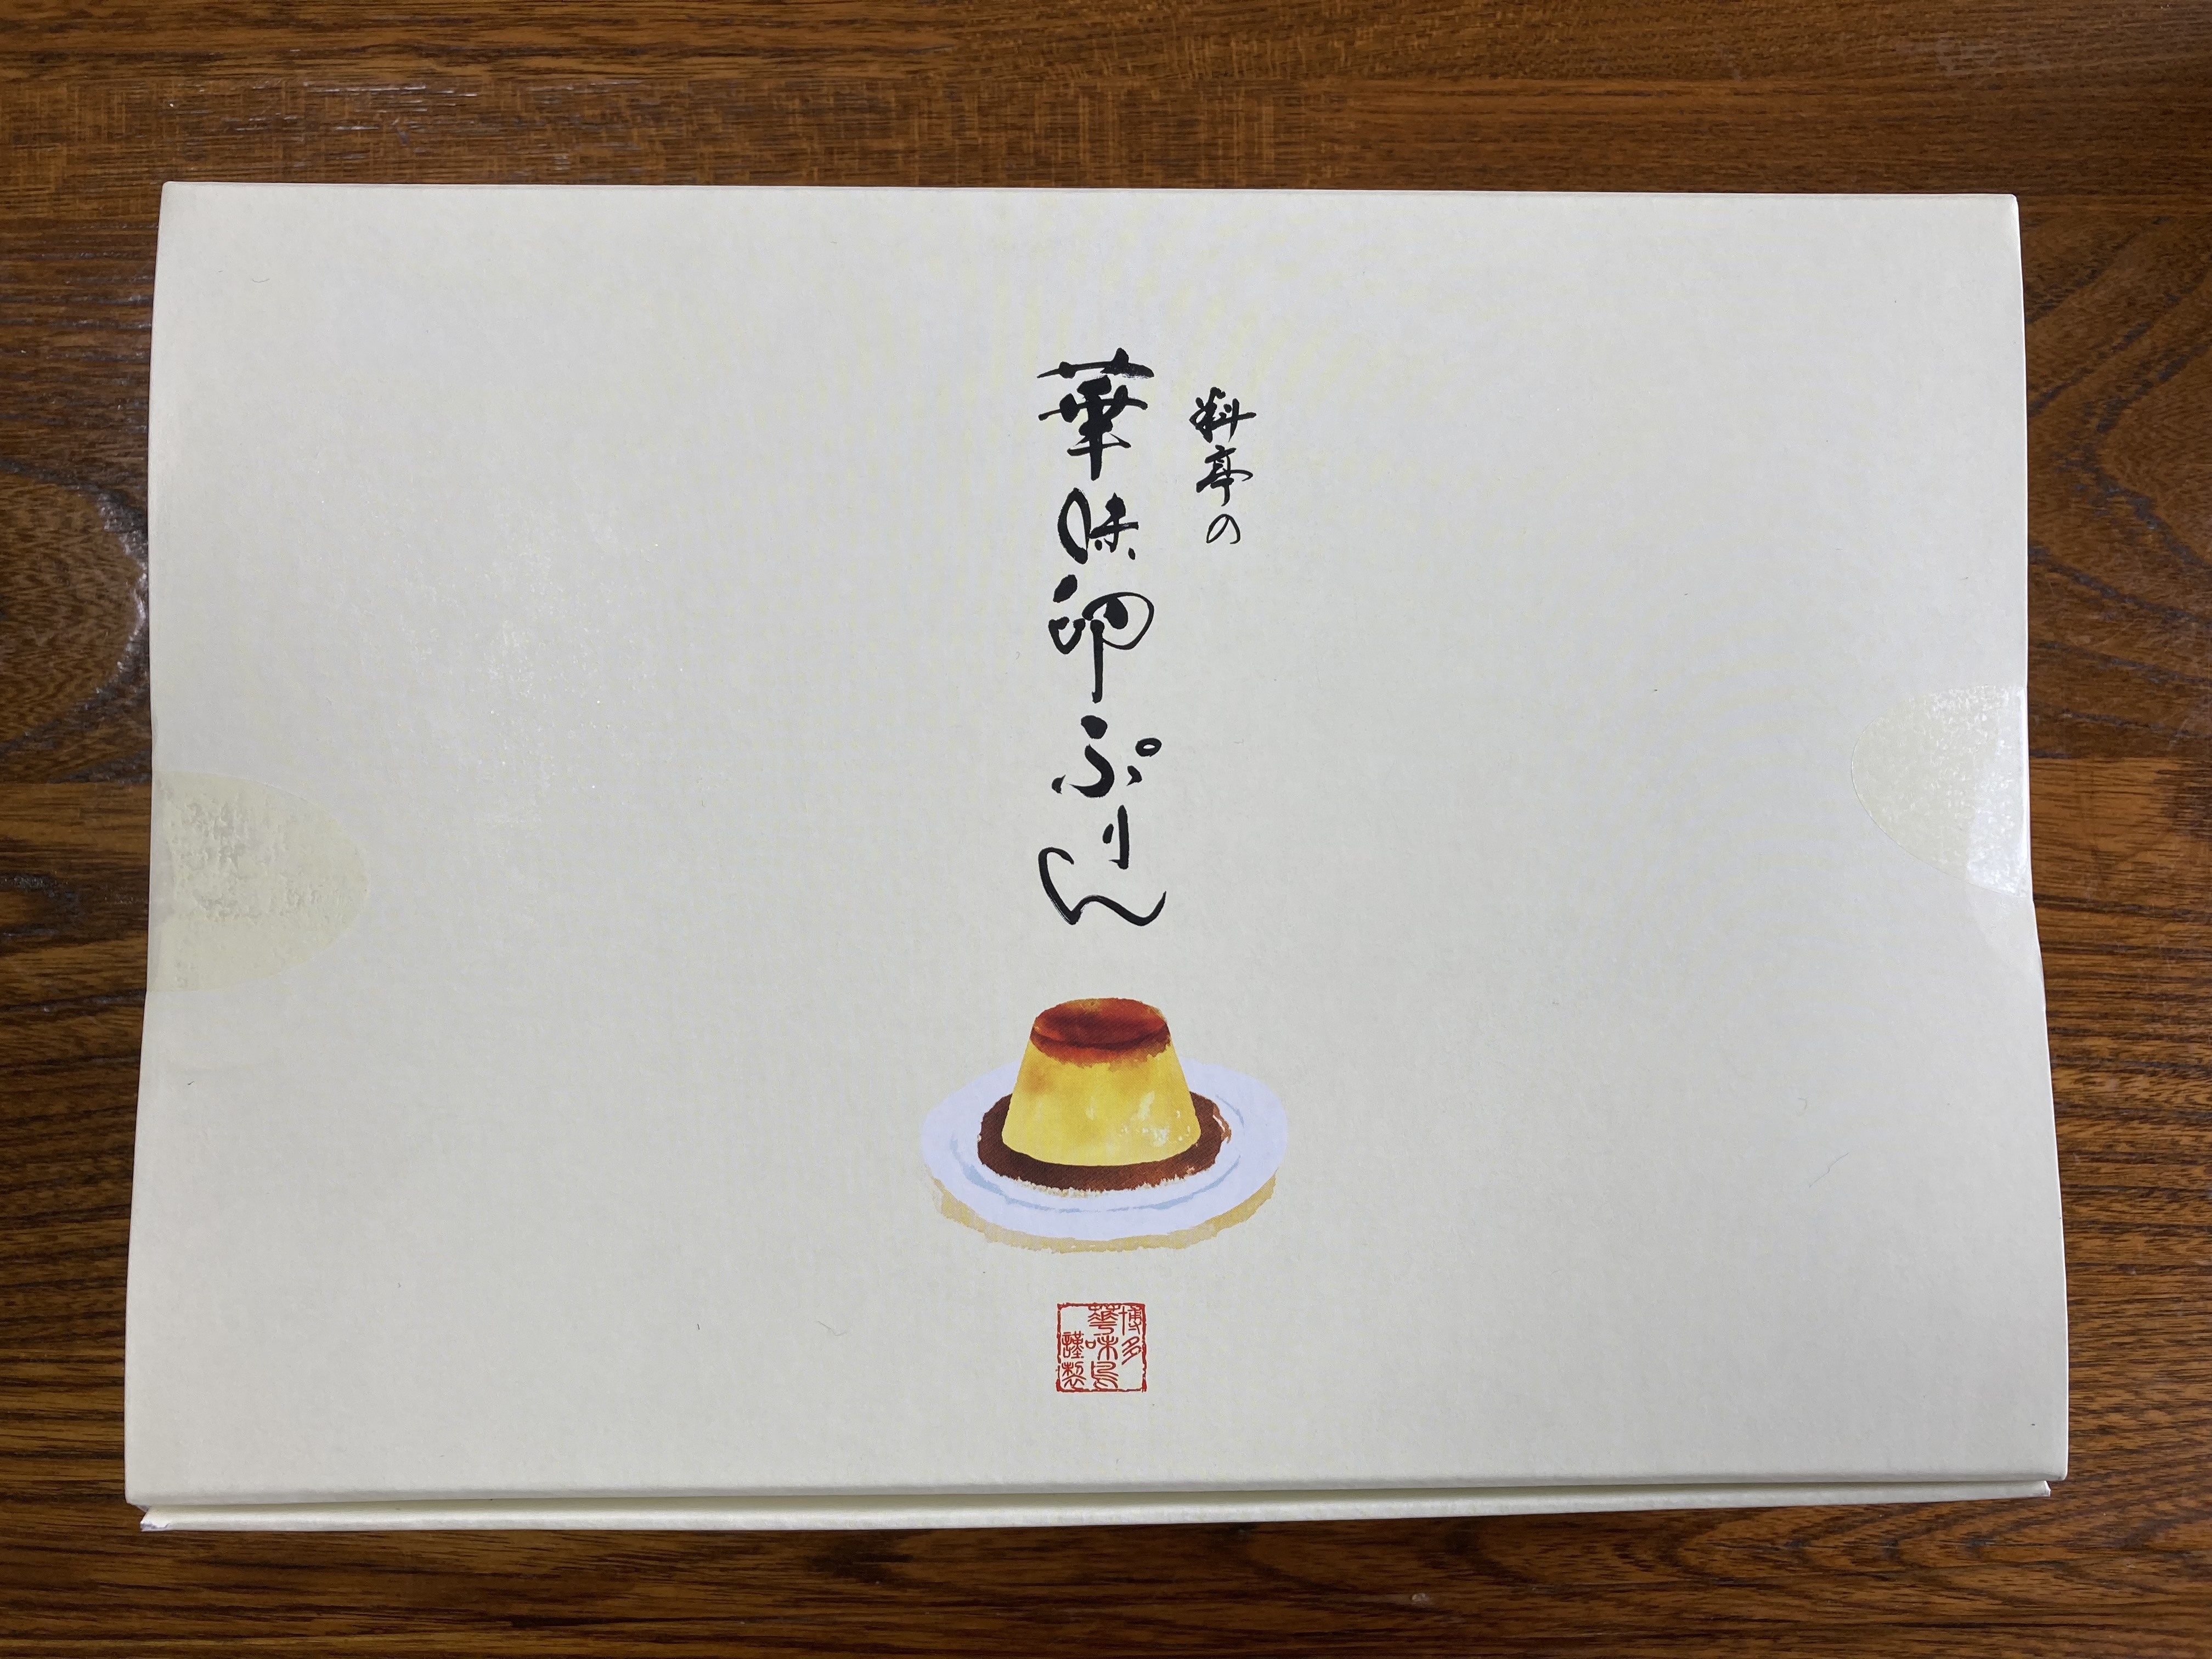 料亭の
華味卵ぷりん
博多
華味鳥
謹製